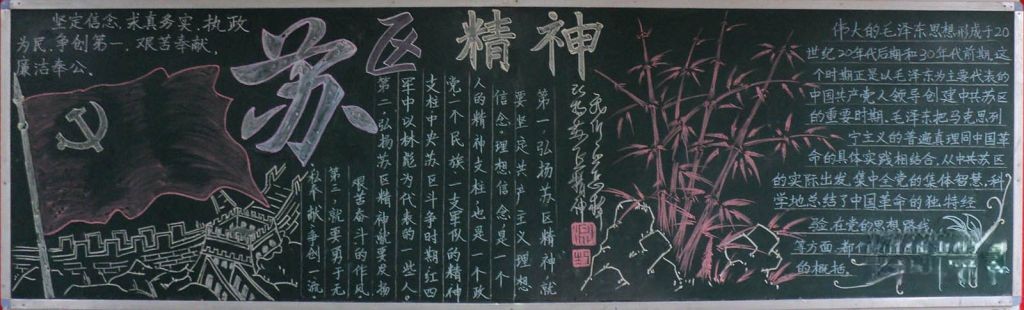 坚定信念、求真务实、执政
为民、争创第一、艰苦奉献、
廉洁奉公。
苏区精神
第一，弘扬苏区精神就
要坚定共产主义理想
信念。理想信念是一个
人的精神支柱，也是一个政
党一个民族、一支军队的精神
支柱。中央苏区斗争时期红四
军中以林彪为代表的一些人。
第二，弘扬苏区精神就要发扬
艰苦奋斗的作风。
第三，就要勇于无
私奉献、争创一流。
伟大的毛泽东思想形成于20
世纪20年代后期和30年代前期。这
个时期正是以毛泽东为主要代表的
中国共产党人领导创建中共苏区
的重要时期。毛泽东把马克思列
宁主义的普遍真理同中国革
命的具体实践相结合，从中共苏区
的实际出发，集中全党的集体智慧，科
学地总结了中国革命的独特经
验，在党的思想路线
等方面，都
的概括。